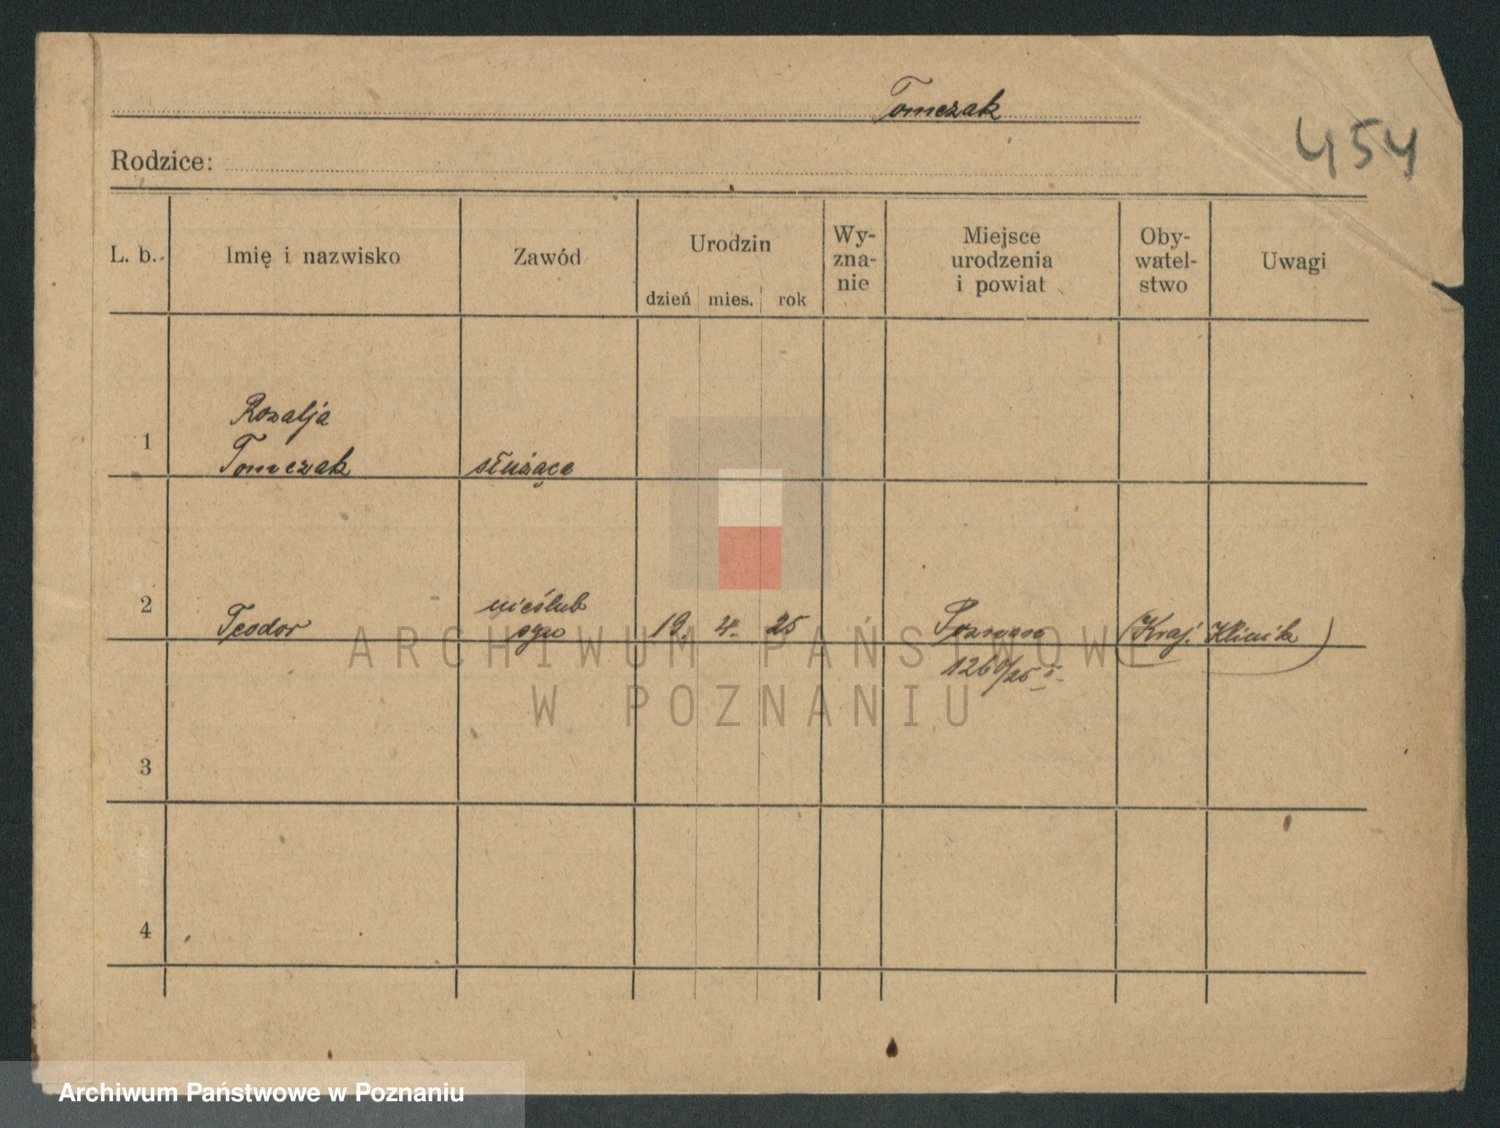 Tomczak
454
Rodzice:
L. b.
Imię i nazwisko
Zawód
Urodzin
dzień mies. rok
Wy-
zna-
nie
Miejsce
urodzenia
i powiat
Oby-
watel-
stwo
Uwagi
1
Rozalja
Tomczak
służąca
2
Teodor
nieślub
syn
19. 4. 25
Poznań
1260/25
(Kraj. Klinik)
3
4
ARCHIWUM PAŃSTWOWE
W POZNANIU
Archiwum Państwowe w Poznaniu